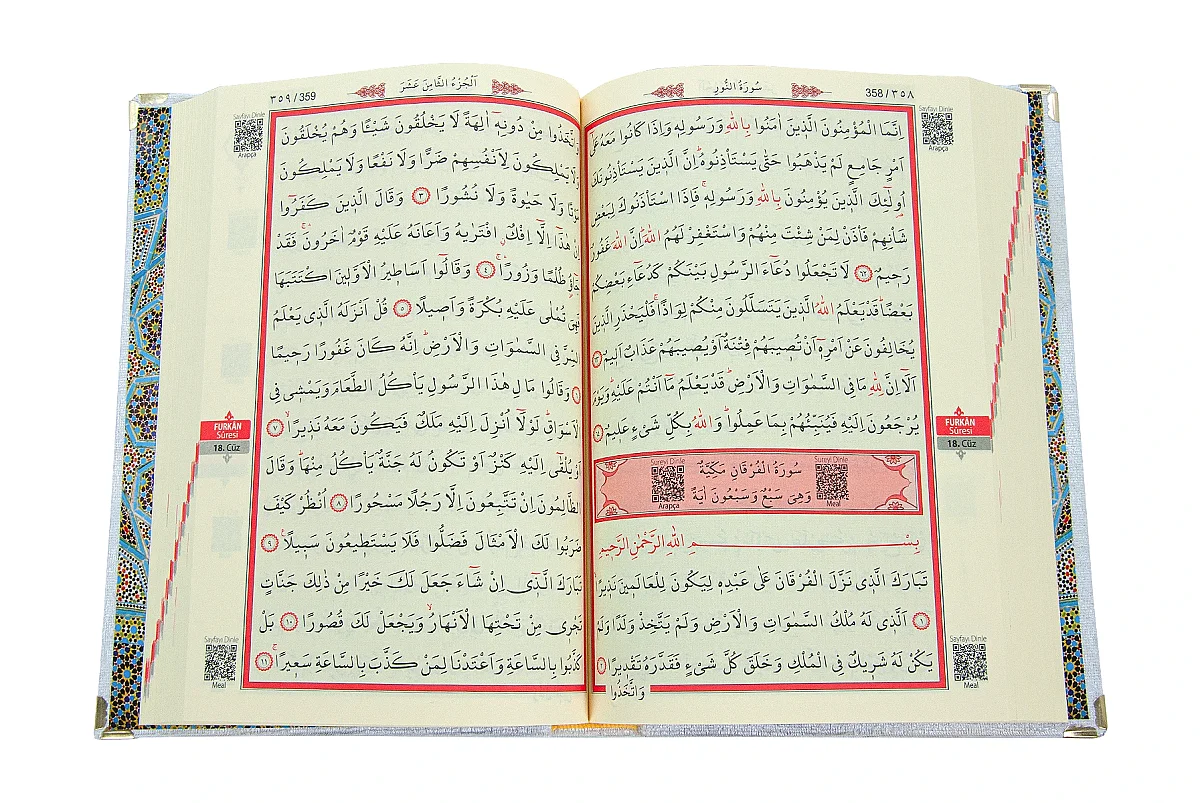 سُورَةُ النُّورِ
358/٣٥٨
Sayfayı Dinle
Arapça
اِنَّمَا الْمُؤْمِنُونَ الَّذ۪ينَ اٰمَنُوا بِاللّٰهِ وَرَسُولِه۪ وَاِذَا كَانُوا مَعَهُ عَلٰٓى
اَمْرٍ جَامِعٍ لَمْ يَذْهَبُوا حَتّٰى يَسْتَأْذِنُوهُۜ اِنَّ الَّذ۪ينَ يَسْتَأْذِنُونَكَ
اُو۬لٰٓئِكَ الَّذ۪ينَ يُؤْمِنُونَ بِاللّٰهِ وَرَسُولِه۪ۚ فَاِذَا اسْتَأْذَنُوكَ لِبَعْضِ
شَأْنِهِمْ فَأْذَنْ لِمَنْ شِئْتَ مِنْهُمْ وَاسْتَغْفِرْ لَهُمُ اللّٰهَۜ اِنَّ اللّٰهَ غَفُورٌ
رَح۪يمٌ ﴿٦٢﴾ لَا تَجْعَلُوا دُعَٓاءَ الرَّسُولِ بَيْنَكُمْ كَدُعَٓاءِ بَعْضِكُمْ
بَعْضًاۜ قَدْ يَعْلَمُ اللّٰهُ الَّذ۪ينَ يَتَسَلَّلُونَ مِنْكُمْ لِوَاذًاۚ فَلْيَحْذَرِ الَّذ۪ينَ
يُخَالِفُونَ عَنْ اَمْرِه۪ٓ اَنْ تُص۪يبَهُمْ فِتْنَةٌ اَوْ يُص۪يبَهُمْ عَذَابٌ اَل۪يمٌ ﴿٦٣﴾
اَلَٓا اِنَّ لِلّٰهِ مَا فِي السَّمٰوَاتِ وَالْاَرْضِۜ قَدْ يَعْلَمُ مَٓا اَنْتُمْ عَلَيْهِۜ وَيَوْمَ
يُرْجَعُونَ اِلَيْهِ فَيُنَبِّئُهُمْ بِمَا عَمِلُواۜ وَاللّٰهُ بِكُلِّ شَيْءٍ عَل۪يمٌ ﴿٦٤﴾
سُورَةُ الْفُرْقَانِ مَكِّيَّةٌ
وَهِيَ سَبْعٌ وَسَبْعُونَ اٰيَةً
Sureyi Dinle
Arapça
Sureyi Dinle
Meal
بِسْمِ اللّٰهِ الرَّحْمٰنِ الرَّح۪يمِ
تَبَارَكَ الَّذ۪ي نَزَّلَ الْفُرْقَانَ عَلٰى عَبْدِه۪ لِيَكُونَ لِلْعَالَم۪ينَ نَذ۪يرًاۙ
﴿١﴾ اَلَّذ۪ي لَهُ مُلْكُ السَّمٰوَاتِ وَالْاَرْضِ وَلَمْ يَتَّخِذْ وَلَدًا وَلَمْ
يَكُنْ لَهُ شَر۪يكٌ فِي الْمُلْكِ وَخَلَقَ كُلَّ شَيْءٍ فَقَدَّرَهُ تَقْد۪يرًا ﴿٢﴾
وَاتَّخَذُوا
FURKÂN
Sûresi
18. Cüz
Sayfayı Dinle
Meal
٣٥٩/359
اَلْجُزْءُ الثَّامِنَ عَشَرَ
Sayfayı Dinle
Arapça
وَاتَّخَذُوا مِنْ دُونِه۪ٓ اٰلِهَةً لَا يَخْلُقُونَ شَيْـًٔا وَهُمْ يُخْلَقُونَ
وَلَا يَمْلِكُونَ لِاَنْفُسِهِمْ ضَرًّا وَلَا نَفْعًا وَلَا يَمْلِكُونَ
مَوْتًا وَلَا حَيٰوةً وَلَا نُشُورًا ﴿٣﴾ وَقَالَ الَّذ۪ينَ كَفَرُٓوا
اِنْ هٰذَٓا اِلَّٓا اِفْكٌۨ افْتَرٰيهُ وَاَعَانَهُ عَلَيْهِ قَوْمٌ اٰخَرُونَۚ فَقَدْ
جَٓاؤُ۫ ظُلْمًا وَزُورًاۚ ﴿٤﴾ وَقَالُٓوا اَسَاط۪يرُ الْاَوَّل۪ينَ اكْتَتَبَهَا
فَهِيَ تُمْلٰى عَلَيْهِ بُكْرَةً وَاَص۪يلًا ﴿٥﴾ قُلْ اَنْزَلَهُ الَّذ۪ي يَعْلَمُ
السِّرَّ فِي السَّمٰوَاتِ وَالْاَرْضِۜ اِنَّهُ كَانَ غَفُورًا رَح۪يمًا
﴿٦﴾ وَقَالُوا مَالِ هٰذَا الرَّسُولِ يَأْكُلُ الطَّعَامَ وَيَمْش۪ي فِي
الْاَسْوَاقِۜ لَوْلَٓا اُنْزِلَ اِلَيْهِ مَلَكٌ فَيَكُونَ مَعَهُ نَذ۪يرًاۙ ﴿٧﴾
اَوْ يُلْقٰٓى اِلَيْهِ كَنْزٌ اَوْ تَكُونُ لَهُ جَنَّةٌ يَأْكُلُ مِنْهَاۜ وَقَالَ
الظَّالِمُونَ اِنْ تَتَّبِعُونَ اِلَّا رَجُلًا مَسْحُورًا ﴿٨﴾ اُنْظُرْ كَيْفَ
ضَرَبُوا لَكَ الْاَمْثَالَ فَضَلُّوا فَلَا يَسْتَط۪يعُونَ سَب۪يلًا۟ ﴿٩﴾
تَبَارَكَ الَّذ۪ٓي اِنْ شَٓاءَ جَعَلَ لَكَ خَيْرًا مِنْ ذٰلِكَ جَنَّاتٍ
تَجْر۪ي مِنْ تَحْتِهَا الْاَنْهَارُۙ وَيَجْعَلْ لَكَ قُصُورًا ﴿١٠﴾ بَلْ
كَذَّبُوا بِالسَّاعَةِ وَاَعْتَدْنَا لِمَنْ كَذَّبَ بِالسَّاعَةِ سَع۪يرًاۚ ﴿١١﴾
FURKÂN
Sûresi
18. Cüz
Sayfayı Dinle
Meal